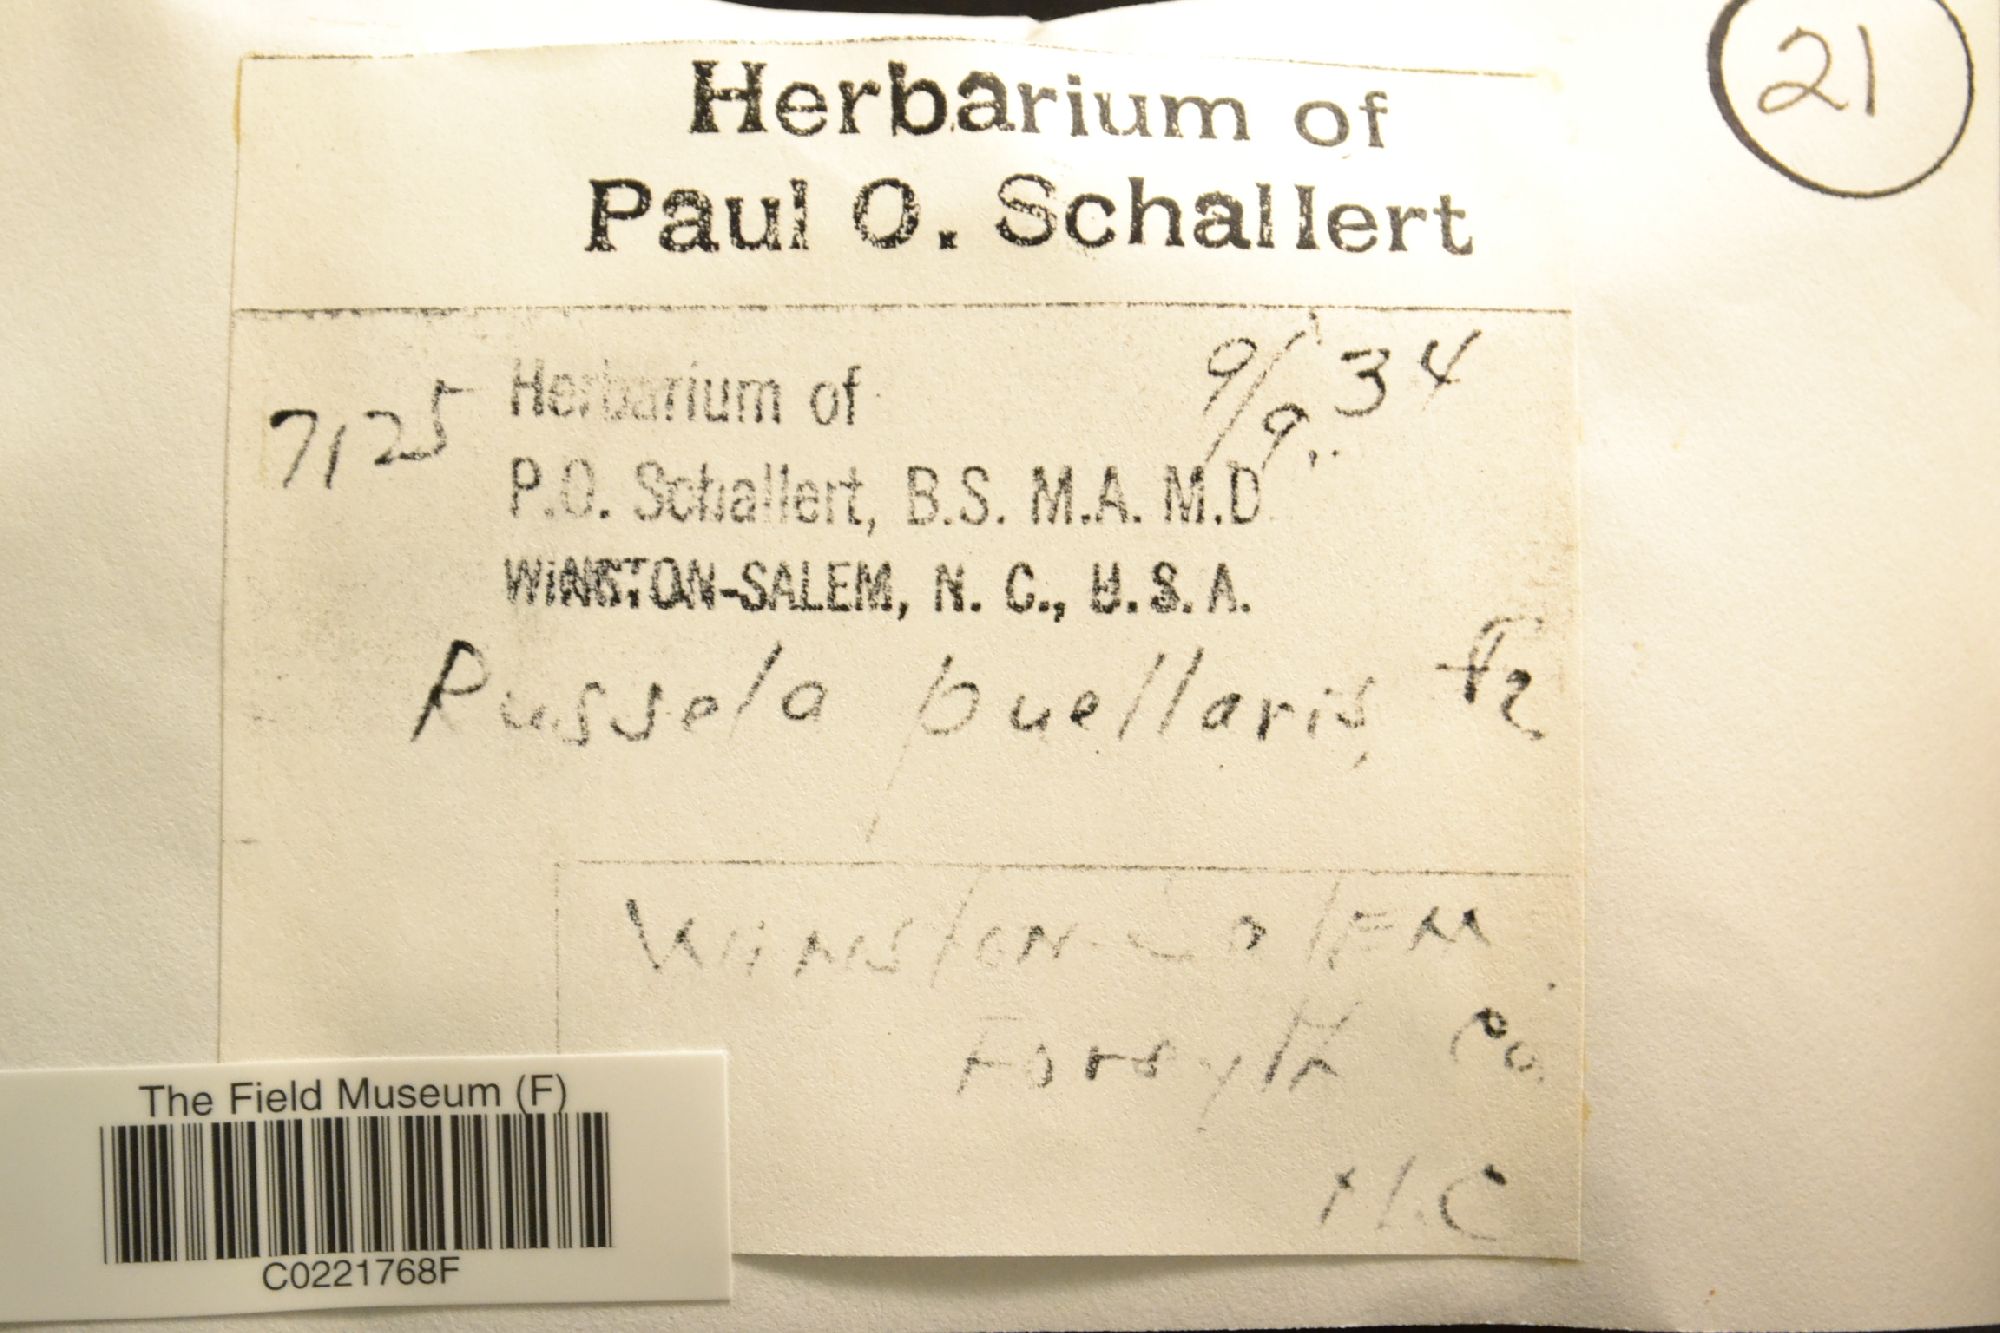 21
Herbarium of
Paul O. Schallert
7125
9/9 34
Herbarium of
P.O. Schallert, B.S. M.A. M.D
WINSTON-SALEM, N. C., U.S.A.
Russela puellaris, Fr
Winston-Salem
Forsyth Co.
N.C
The Field Museum (F)
C0221768F